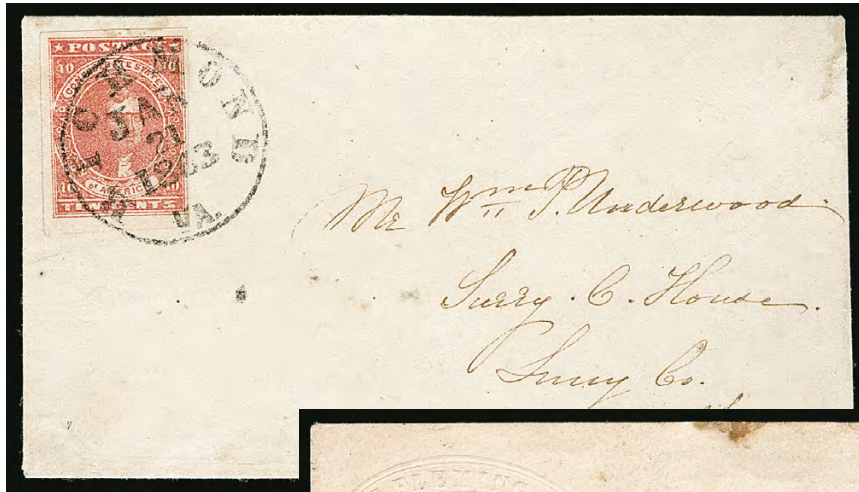 ★ POSTAGE
10 10
OF AMERICA
TEN CENTS
RICHMOND
JAN
1863
VA
Mr Wm P. Underwood
Surry . C. House .
Surry Co.